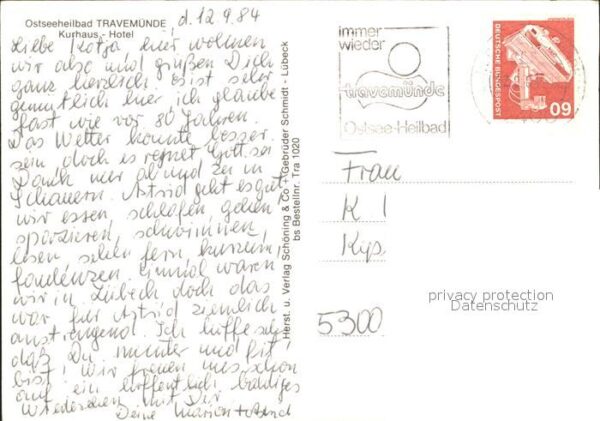 Ostseeheilbad TRAVEMÜNDE
Kurhaus - Hotel
d. 12.9.84
Liebe Katja hier wohnen
wir also und grüßen Dich
ganz herzlich. Es ist sehr
gemütlich hier, ich glaube
fast wie vor 80 Jahren.
Das Wetter könnte besser
sein doch es regnet Gott sei
Dank nur ab und zu in
Schauern. Astrid geht es gut,
wir essen, schlafen, gehen
spazieren, schwimmen,
lesen sehen fern, kurzum,
faulenzen. Einmal waren
wir in Lübeck doch das
war für Astrid ziemlich
anstrengend. Ich hoffe sehr
daß Du munter und fit
bist! Wir freuen uns schon
auf ein hoffentlich baldiges
Wiedersehen mit Dir
Deine Marion + Astrid
Herst. u. Verlag Schöning & Co + Gebrüder Schmidt - Lübeck
bs Bestellnr. Tra 1020
immer
wieder
travemünde
Ostsee-Heilbad
DEUTSCHE BUNDESPOST
60
Frau
K
Kys
5300
privacy protection
Datenschutz